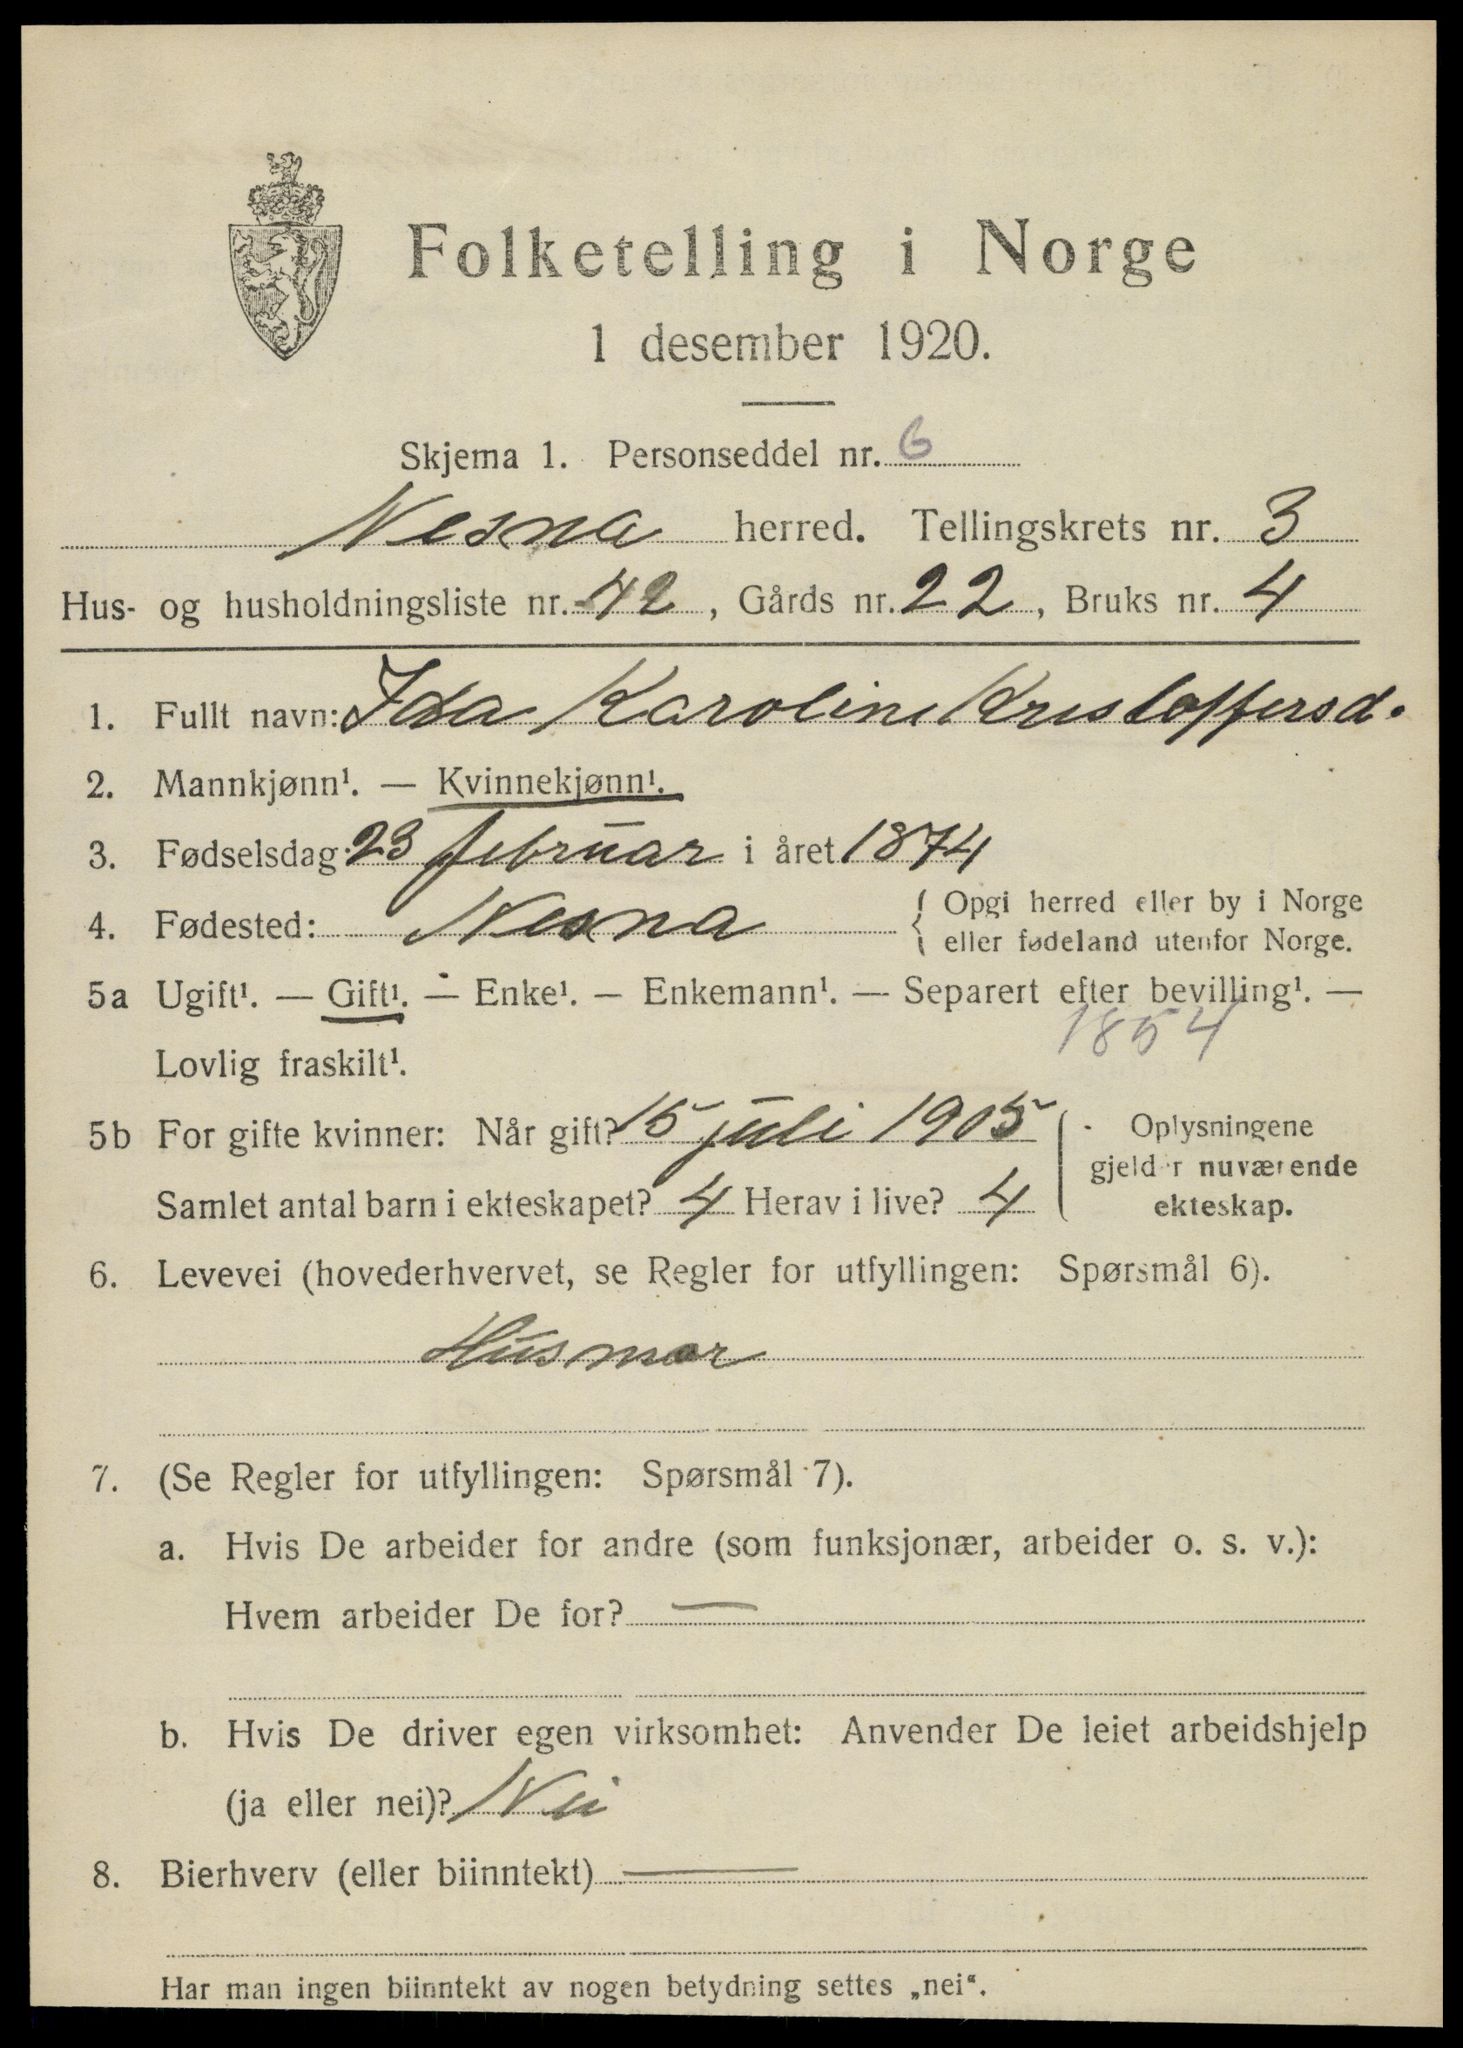 Folketelling i Norge
1 desember 1920.
Skjema 1. Personseddel nr. 6
Nesna herred. Tellingskrets nr. 3
Hus- og husholdningsliste nr. 42, Gårds nr. 22, Bruks nr. 4
1. Fullt navn: Ida Karoline Kristoffersd.
2. Mannkjønn¹. — Kvinnekjønn¹.
3. Fødselsdag: 23 februar i året 1874
4. Fødested: Nesna { Opgi herred eller by i Norge
eller fødeland utenfor Norge.
5a Ugift¹. — Gift¹. — Enke¹. — Enkemann¹. — Separert efter bevilling¹. —
1854
Lovlig fraskilt¹.
5b For gifte kvinner: Når gift? 15 juli 1905 { Oplysningene
gjelder nuværende
Samlet antal barn i ekteskapet? 4 Herav i live? 4 ekteskap.
6. Levevei (hovederhvervet, se Regler for utfyllingen: Spørsmål 6).
Husmor
7. (Se Regler for utfyllingen: Spørsmål 7).
a. Hvis De arbeider for andre (som funksjonær, arbeider o. s. v.):
Hvem arbeider De for? —
b. Hvis De driver egen virksomhet: Anvender De leiet arbeidshjelp
(ja eller nei)? Nei
8. Bierhverv (eller biinntekt) —
Har man ingen biinntekt av nogen betydning settes „nei“.